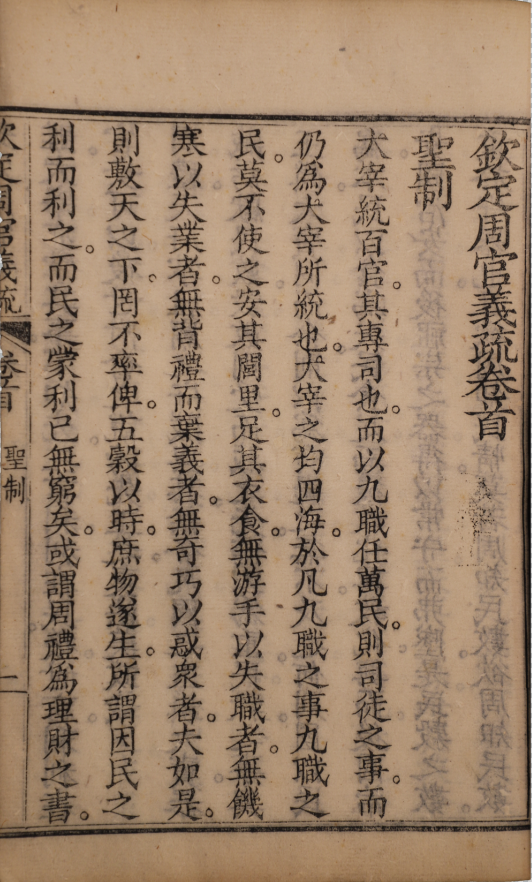 欽定周官義疏卷首
聖制
大宰統百官。其專司也。而以九職任萬民。則司徒之事。而
仍為大宰所統也。大宰之均四海。於凡九職之事九職之
民。莫不使之安其閭里。足其衣食。無游手以失職者。無饑
寒以失業者。無背禮而棄義者。無奇巧以惑衆者。夫如是。
則敷天之下。罔不率俾。五穀以時。庶物遂生。所謂因民之
利而利之。而民之蒙利已無窮矣。或謂周禮為理財之書。
欽定周官義疏
卷首
聖制
一